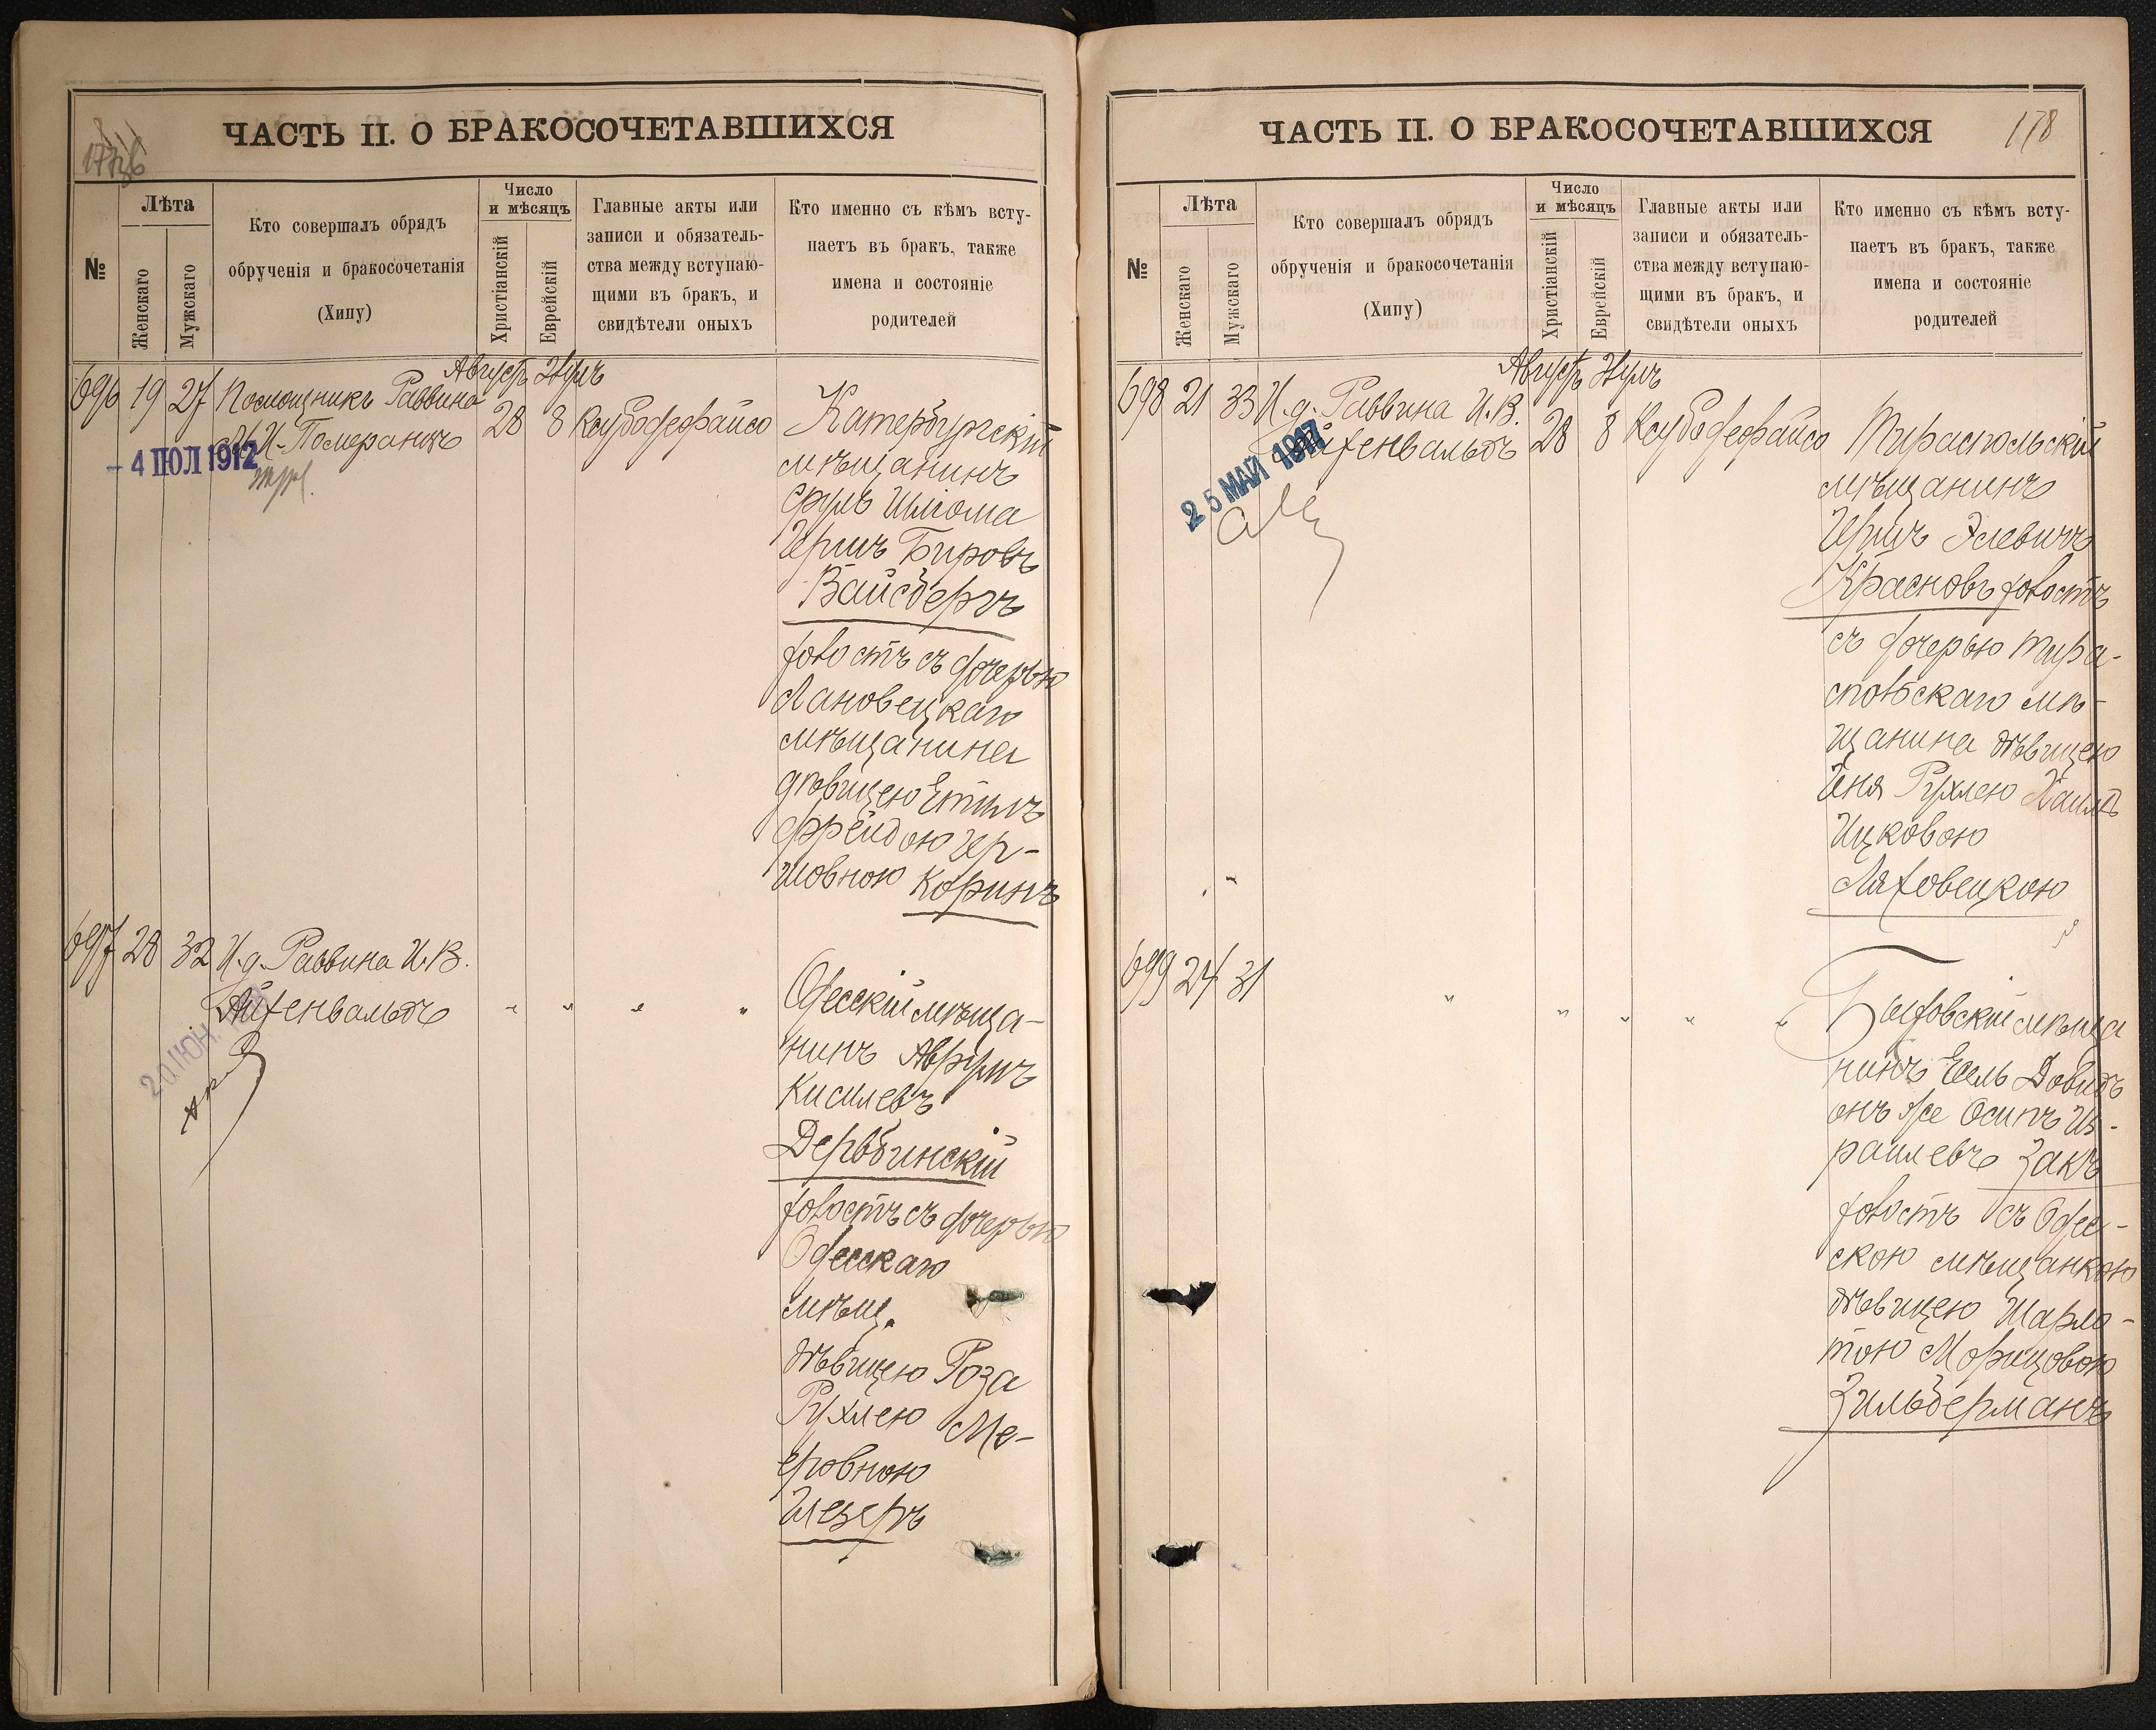 ЧАСТЬ II. О БРАКОСОЧЕТАВШИХСЯ
№
Лѣта
Женскаго
Мужскаго
Кто совершалъ обрядъ
обрученія и бракосочетанія
(Хипу)
Число
и мѣсяцъ
Христіанскій
Еврейскій
Главные акты или
записи и обязатель-
ства между вступаю-
щими въ бракъ, и
свидѣтели оныхъ
Кто именно съ кѣмъ всту-
паетъ въ бракъ, также
имена и состояніе
родителей
Августъ
696 19 27 Помощникъ Раввина
Померанцъ
28 8
- 4 ІЮЛ 1912
Катербургскій
мѣщанинъ
Сруль Шлiома
Гершъ Бировъ
Вайсбергъ
холостъ съ дочерью
Лановецкаго
мѣщанина
дѣвицею Этиль
Фрейдою Гер-
шовною Коринъ
697 28 32 И.д. Раввина И.В.
Айхенвальдъ
20 ІЮН.
" " " "
Одесскій мѣща-
нинъ Аврумъ
Кисилевъ
Дербинскій
холостъ съ дочерью
Одесскаго
мѣщ.
дѣвицею Роза
Рухлею Ме-
еровною
ЧАСТЬ II. О БРАКОСОЧЕТАВШИХСЯ
178
№
Лѣта
Женскаго
Мужскаго
Кто совершалъ обрядъ
обрученія и бракосочетанія
(Хипу)
Число
и мѣсяцъ
Христіанскій
Еврейскій
Главные акты или
записи и обязатель-
ства между вступаю-
щими въ бракъ, и
свидѣтели оныхъ
Кто именно съ кѣмъ всту-
паетъ въ бракъ, также
имена и состояніе
родителей
Августъ
698 21 33 И.д. Раввина И.В.
Айхенвальдъ
28 8
25 МАЙ 1917
Тираспольскій
мѣщанинъ
Гершъ Элевичъ
Красновъ холостъ
съ дочерью Тира-
спольскаго мѣ-
щанина дѣвицею
Рухлею
Ицковою
Ляховецкою
699 24 31
" " " " "
мѣща
нинъ Есель Довидъ
онъ же Осипъ Из-
раилевъ Закъ
холостъ съ Одес-
скою мѣщанкою
дѣвицею Шарло-
тою Морицовою
Зильберманъ